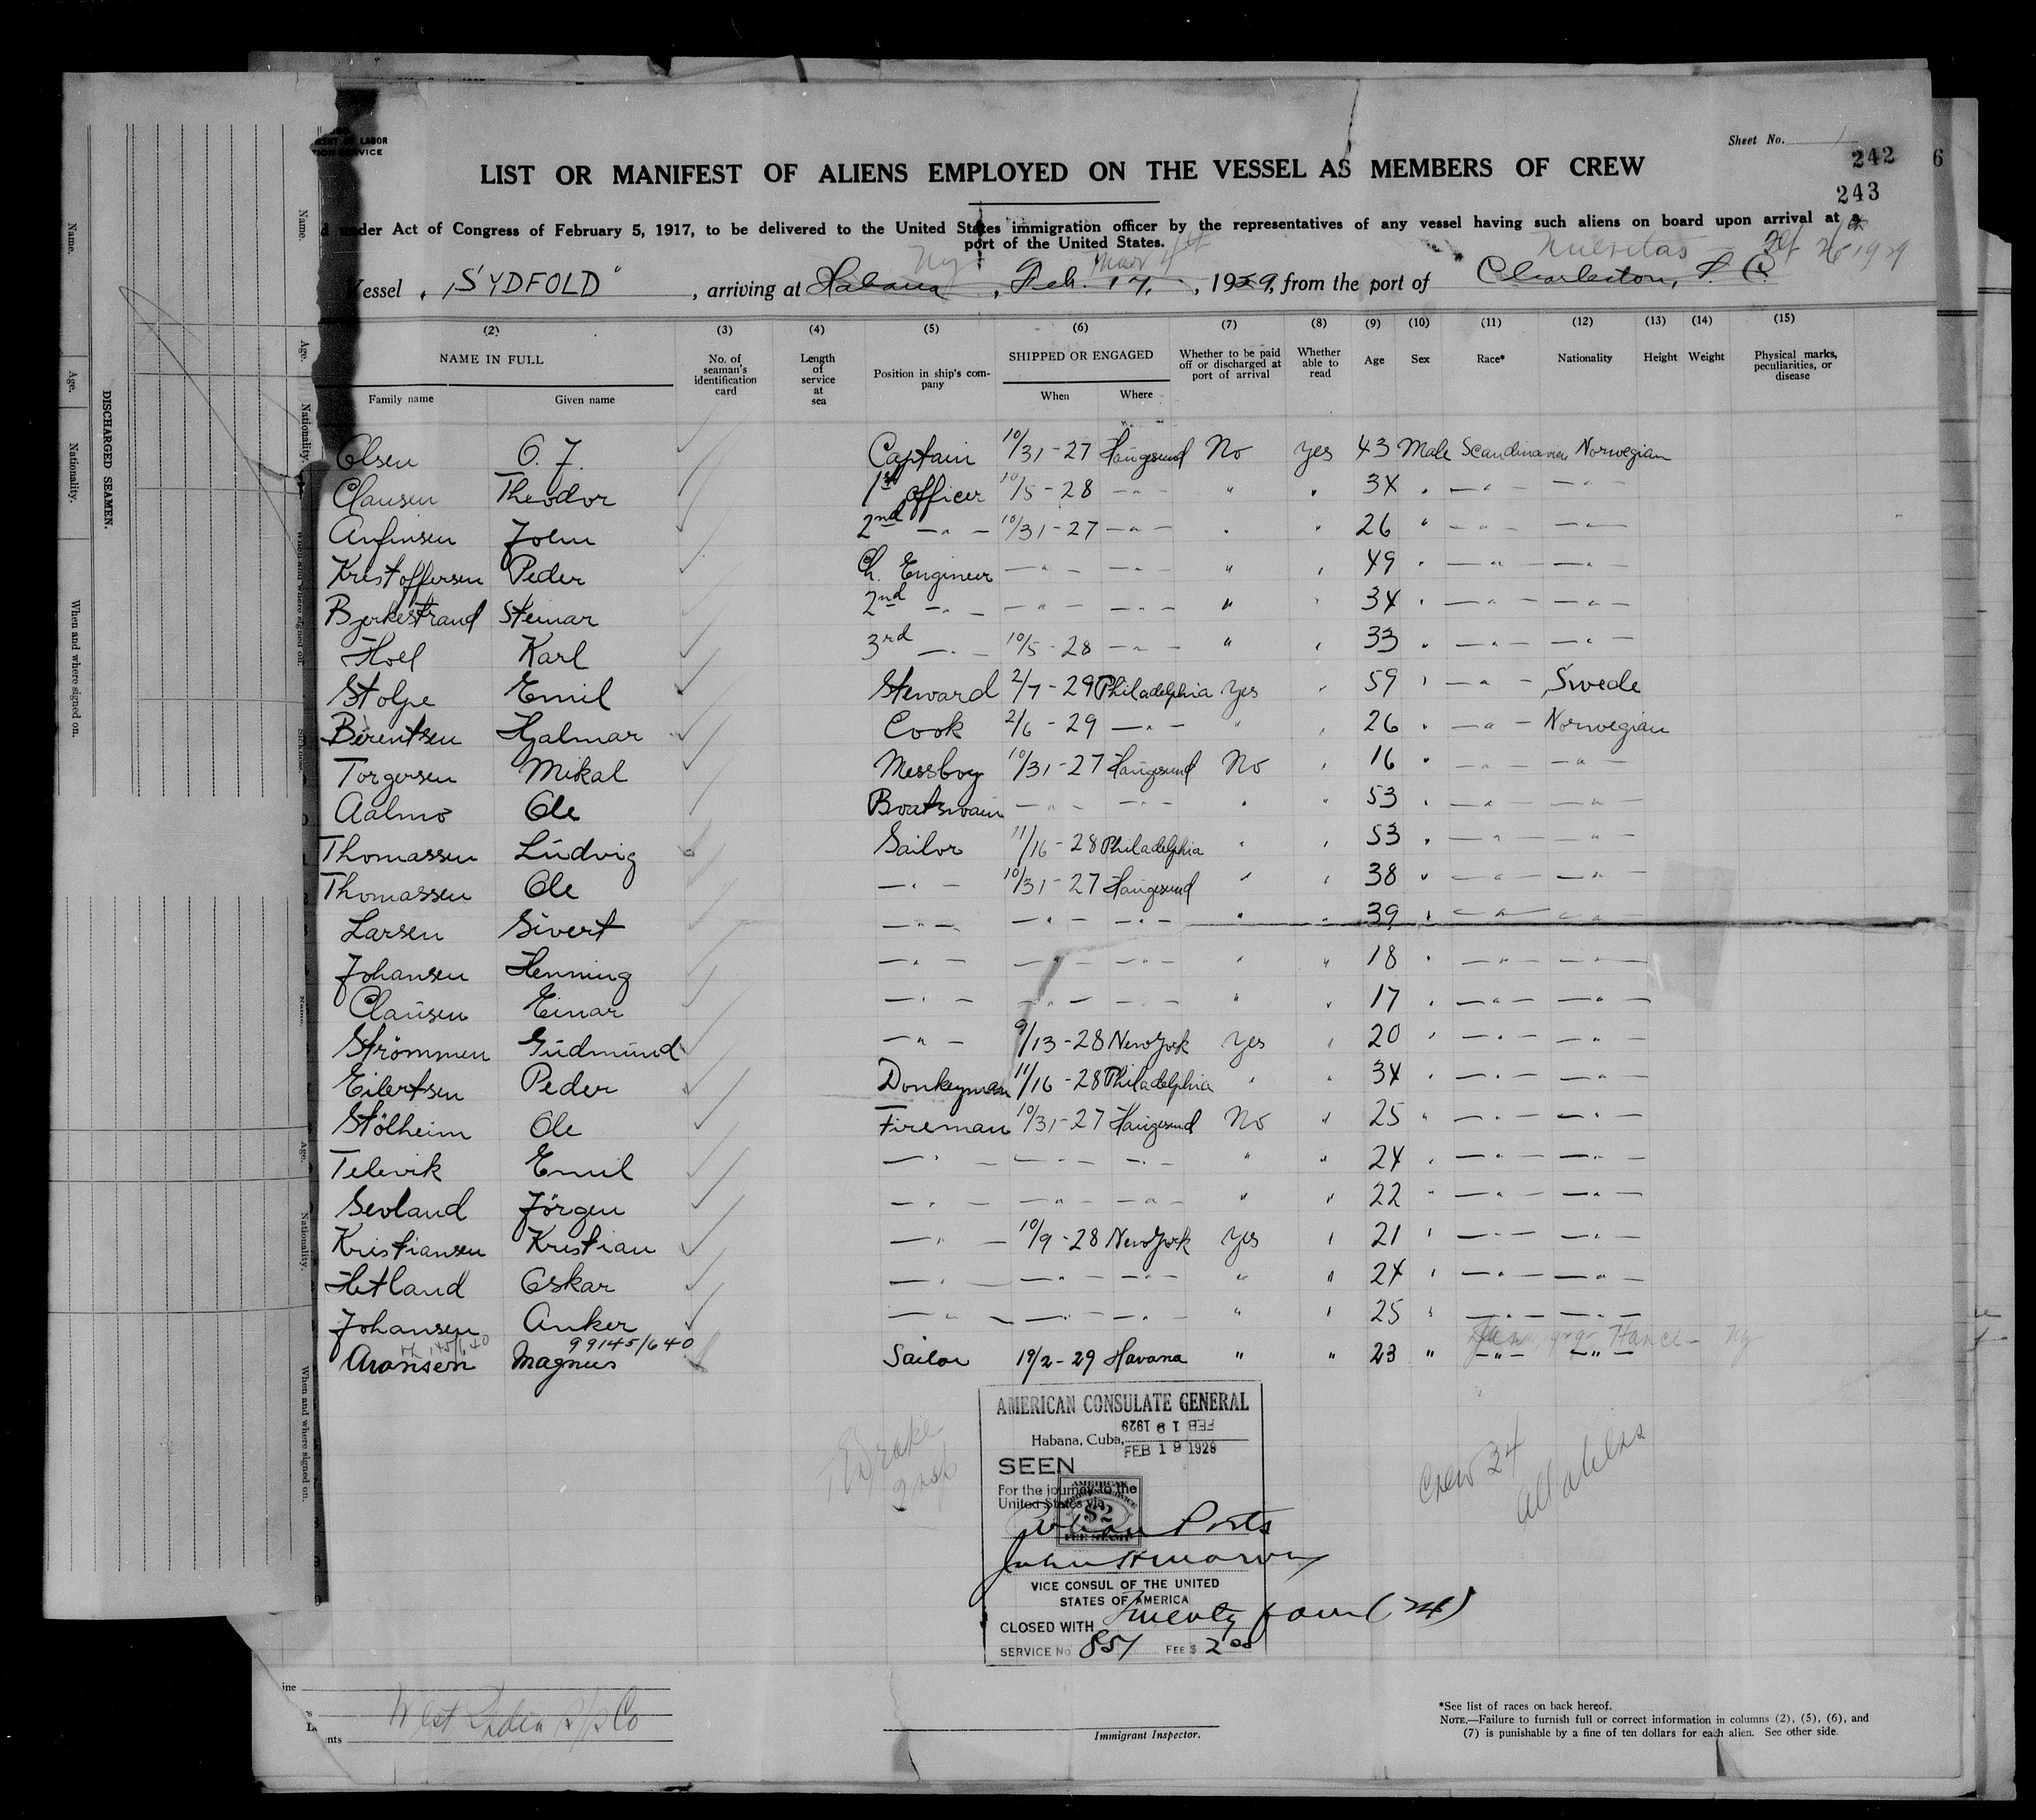 Sheet No. 1
242
6
243
LABOR
SERVICE
LIST OR MANIFEST OF ALIENS EMPLOYED ON THE VESSEL AS MEMBERS OF CREW
under Act of Congress of February 5, 1917, to be delivered to the United States immigration officer by the representatives of any vessel having such aliens on board upon arrival at a
port of the United States.
Ny Mar 4th Nuevitas Feb 26 1929
Vessel "SYDFOLD", arriving at Habana, Feb. 17, 1929, from the port of Charleston, S. C.
(2) (3) (4) (5) (6) (7) (8) (9) (10) (11) (12) (13) (14) (15)
NAME IN FULL No. of seaman's identification card Length of service at sea Position in ship's company SHIPPED OR ENGAGED Whether to be paid off or discharged at port of arrival Whether able to read Age Sex Race* Nationality Height Weight Physical marks, peculiarities, or disease
Family name Given name When Where
Olsen O. J. Captain 10/31-27 Haugesund No Yes 43 Male Scandinavien Norwegian
Clausen Theodor 1st Officer 10/5-28 —"— " " 34 " —"— —"—
Anfinsen John 2nd —"— 10/31-27 —"— " " 26 " —"— —"—
Kristoffersen Peder Ch. Engineer —"— —"— " " 49 " —"— —"—
Bjerkestrand Steinar 2nd —"— —"— —"— " " 34 " —"— —"—
Hoel Karl 3rd —"— 10/5-28 —"— " " 33 " —"— —"—
Stolpe Emil Steward 2/7-29 Philadelphia Yes " 59 " —"— Swede
Berentsen Hjalmar Cook 2/6-29 —"— " " 26 " —"— Norwegian
Torgersen Mikal Messboy 10/31-27 Haugesund No " 16 " —"— —"—
Aalmo Ole Boatswain —"— —"— " " 53 " —"— —"—
Thomassen Ludvig Sailor 11/16-28 Philadelphia " " 53 " —"— —"—
Thomassen Ole —"— 10/31-27 Haugesund " " 38 " —"— —"—
Larsen Sivert —"— —"— —"— " " 39 " —"— —"—
Johansen Henning —"— —"— —"— " " 18 " —"— —"—
Clausen Einar —"— —"— —"— " " 17 " —"— —"—
Strömmen Gudmund —"— 9/13-28 New York Yes " 20 " —"— —"—
Eilertsen Peder Donkeyman 11/16-28 Philadelphia " " 34 " —"— —"—
Stölheim Ole Fireman 10/31-27 Haugesund No " 25 " —"— —"—
Televik Emil —"— —"— —"— " " 24 " —"— —"—
Sevland Jörgen —"— —"— —"— " " 22 " —"— —"—
Kristiansen Kristian —"— 10/9-28 New York Yes " 21 " —"— —"—
Hetland Oskar —"— —"— —"— " " 24 " —"— —"—
Johansen Anker —"— —"— —"— " " 25 " —"— —"—
99145/640
Aronsen Magnus Sailor 19/2-29 Havana " " 23 " —"— —"—
AMERICAN CONSULATE GENERAL
FEB 19 1929
Habana, Cuba, FEB 19 1929
SEEN
For the journey to the
United States via
$2
Cuban Ports
VICE CONSUL OF THE UNITED
STATES OF AMERICA
CLOSED WITH Twenty four (24)
SERVICE No 851 FEE $ 2.00
Crew 24
all aliens
ine
nts
Immigrant Inspector.
*See list of races on back hereof.
NOTE.—Failure to furnish full or correct information in columns (2), (5), (6), and
(7) is punishable by a fine of ten dollars for each alien. See other side.
DISCHARGED SEAMEN.
Name.
Age.
Nationality.
When and where signed on.
Name.
Age.
Nationality.
When and where signed off.
Age.
Nationality.
When and where signed on.